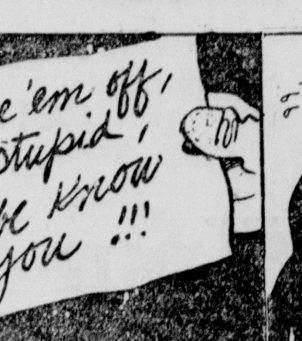 e 'em off,
stupid,
be know
you !!!